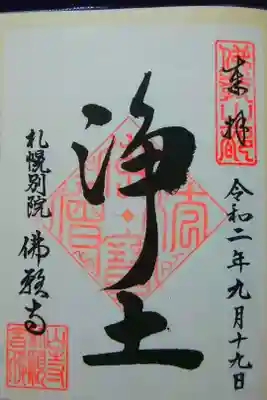 来拝
令和二年九月十九日
浄土
札幌別院 佛願寺